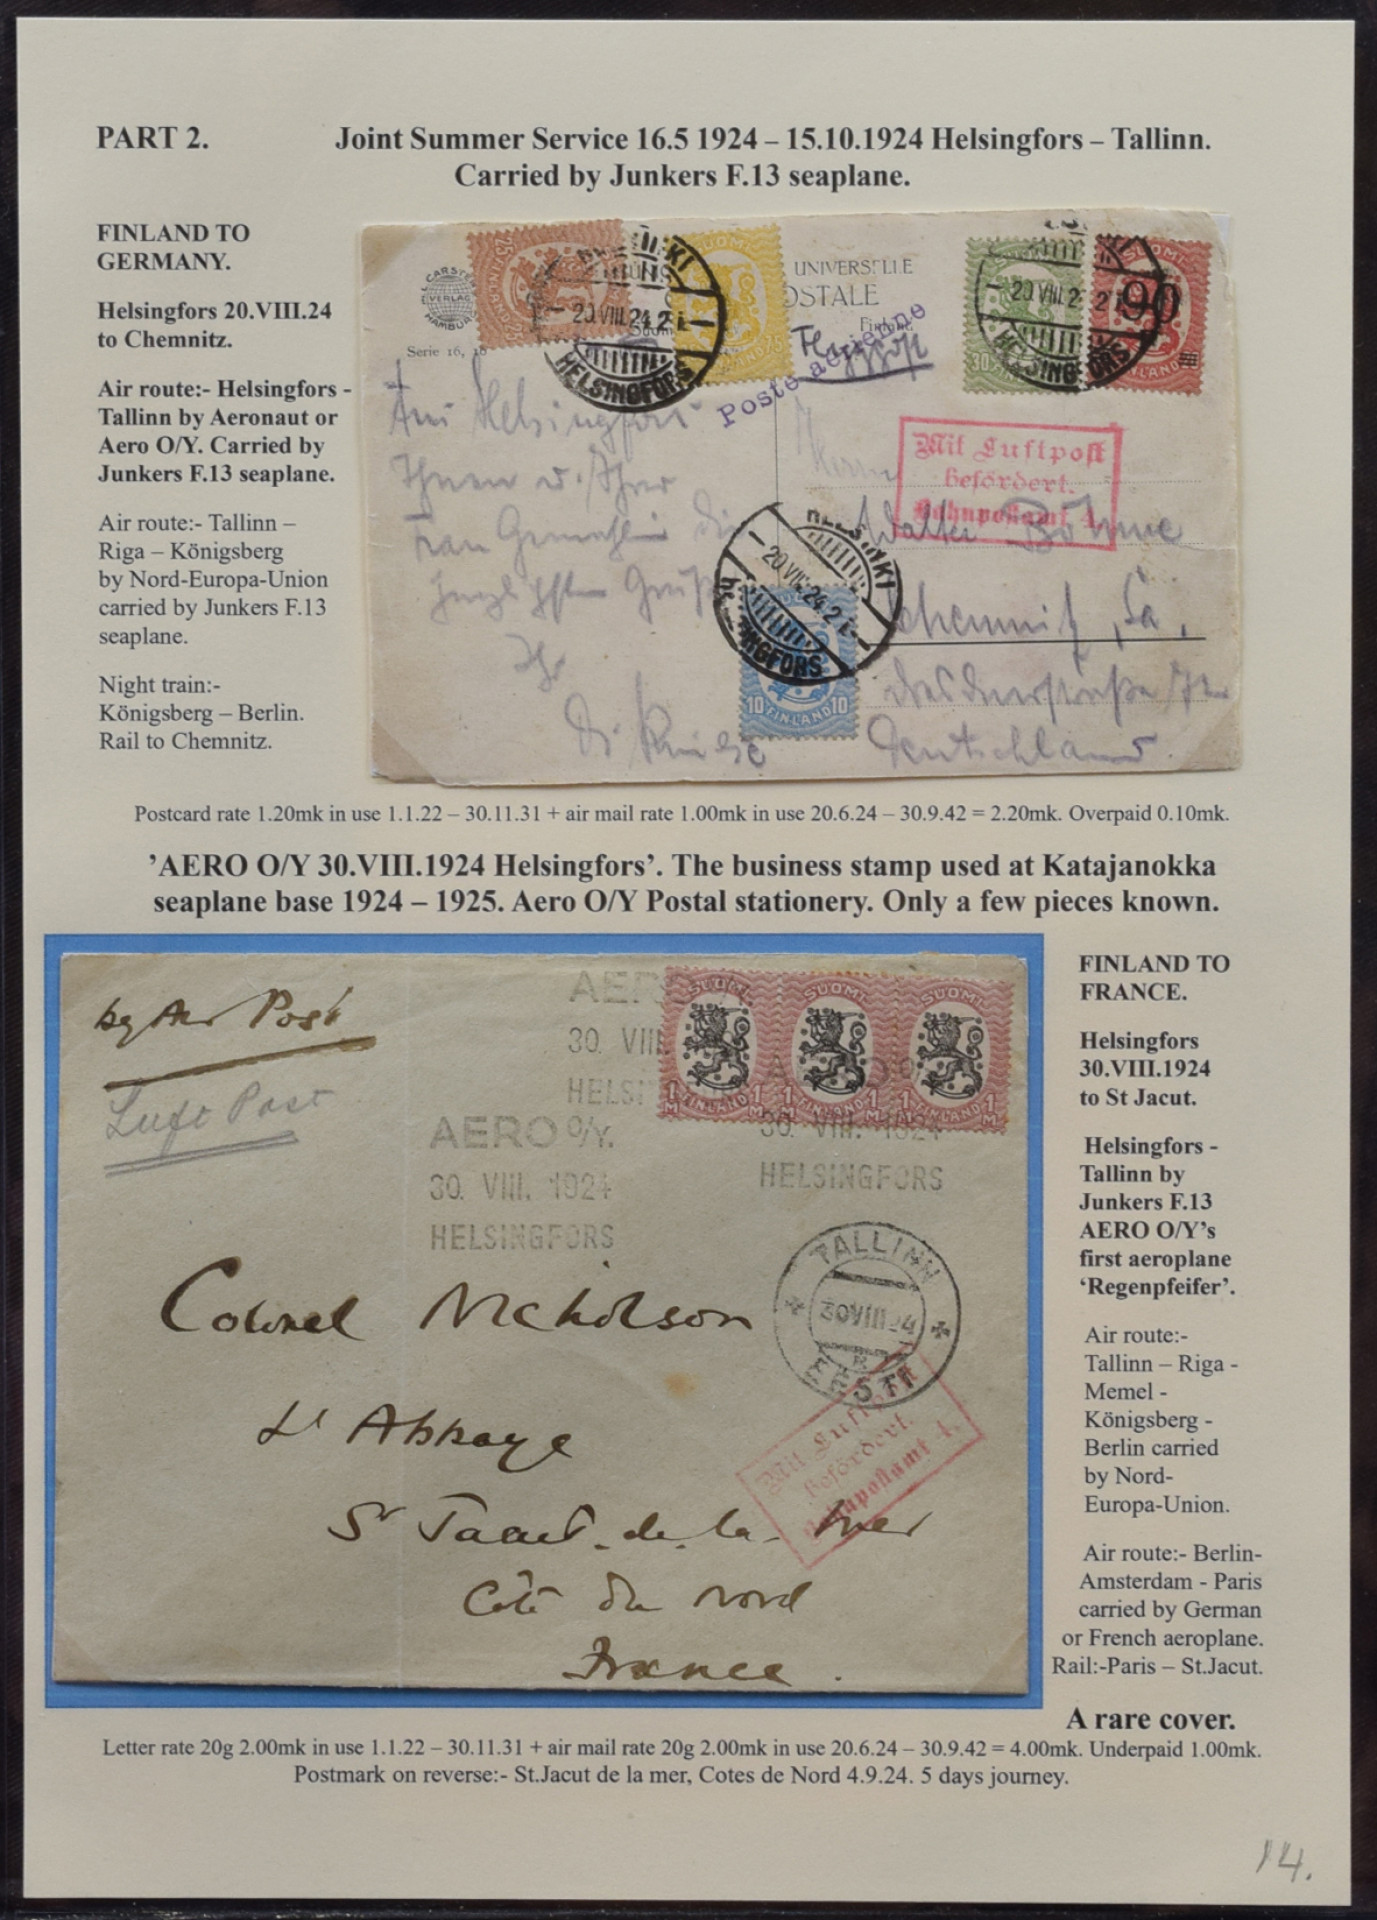 PART 2. Joint Summer Service 16.5 1924 – 15.10.1924 Helsingfors – Tallinn.
Carried by Junkers F.13 seaplane.
FINLAND TO
GERMANY.
Helsingfors 20.VIII.24
to Chemnitz.
Air route:- Helsingfors -
Tallinn by Aeronaut or
Aero O/Y. Carried by
Junkers F.13 seaplane.
Air route:- Tallinn –
Riga – Königsberg
by Nord-Europa-Union
carried by Junkers F.13
seaplane.
Night train:-
Königsberg – Berlin.
Rail to Chemnitz.
CARSTE
VERLAG
HAMBURG
Serie 16,
UNIVERSELLE
Poste aérienne
Flugpost
HELSINKI
20.VIII.24
HELSINGFORS
SUOMI
FINLAND 75
20.VIII.2
HELSINGFORS
30
SUOMI
90
FINLAND
Mit Luftpost
befördert.
Bahnpostamt 4.
Aus Helsingfors
Ihnen u. Ihrer
Frau Gemahlin die
herzlichsten Grüße
Ihr
Herrn
Walter Böhme
Chemnitz, Sa.
Deutschland.
HELSINKI
20.VIII.24.2
HELSINGFORS
10 FINLAND 10
Postcard rate 1.20mk in use 1.1.22 – 30.11.31 + air mail rate 1.00mk in use 20.6.24 – 30.9.42 = 2.20mk. Overpaid 0.10mk.
’AERO O/Y 30.VIII.1924 Helsingfors’. The business stamp used at Katajanokka
seaplane base 1924 – 1925. Aero O/Y Postal stationery. Only a few pieces known.
by Air Post
Luft Post
AERO
30. VIII.
HELSI
SUOMI SUOMI SUOMI
1 M FINLAND 1 M 1 M FINLAND 1 M 1 M FINLAND 1 M
AERO O/Y.
30. VIII. 1924
HELSINGFORS
30. VIII. 1924
HELSINGFORS
TALLINN
30 VIII 24
EESTI
Mit Luftpost
befördert.
Bahnpostamt 4.
Colonel Nicholson
L'Abbaye
St Jacut-de-la-mer
Côte du Nord
France.
FINLAND TO
FRANCE.
Helsingfors
30.VIII.1924
to St Jacut.
Helsingfors -
Tallinn by
Junkers F.13
AERO O/Y’s
first aeroplane
‘Regenpfeifer’.
Air route:-
Tallinn – Riga -
Memel -
Königsberg -
Berlin carried
by Nord-
Europa-Union.
Air route:- Berlin-
Amsterdam - Paris
carried by German
or French aeroplane.
Rail:-Paris – St.Jacut.
A rare cover.
Letter rate 20g 2.00mk in use 1.1.22 – 30.11.31 + air mail rate 20g 2.00mk in use 20.6.24 – 30.9.42 = 4.00mk. Underpaid 1.00mk.
Postmark on reverse:- St.Jacut de la mer, Cotes de Nord 4.9.24. 5 days journey.
14.